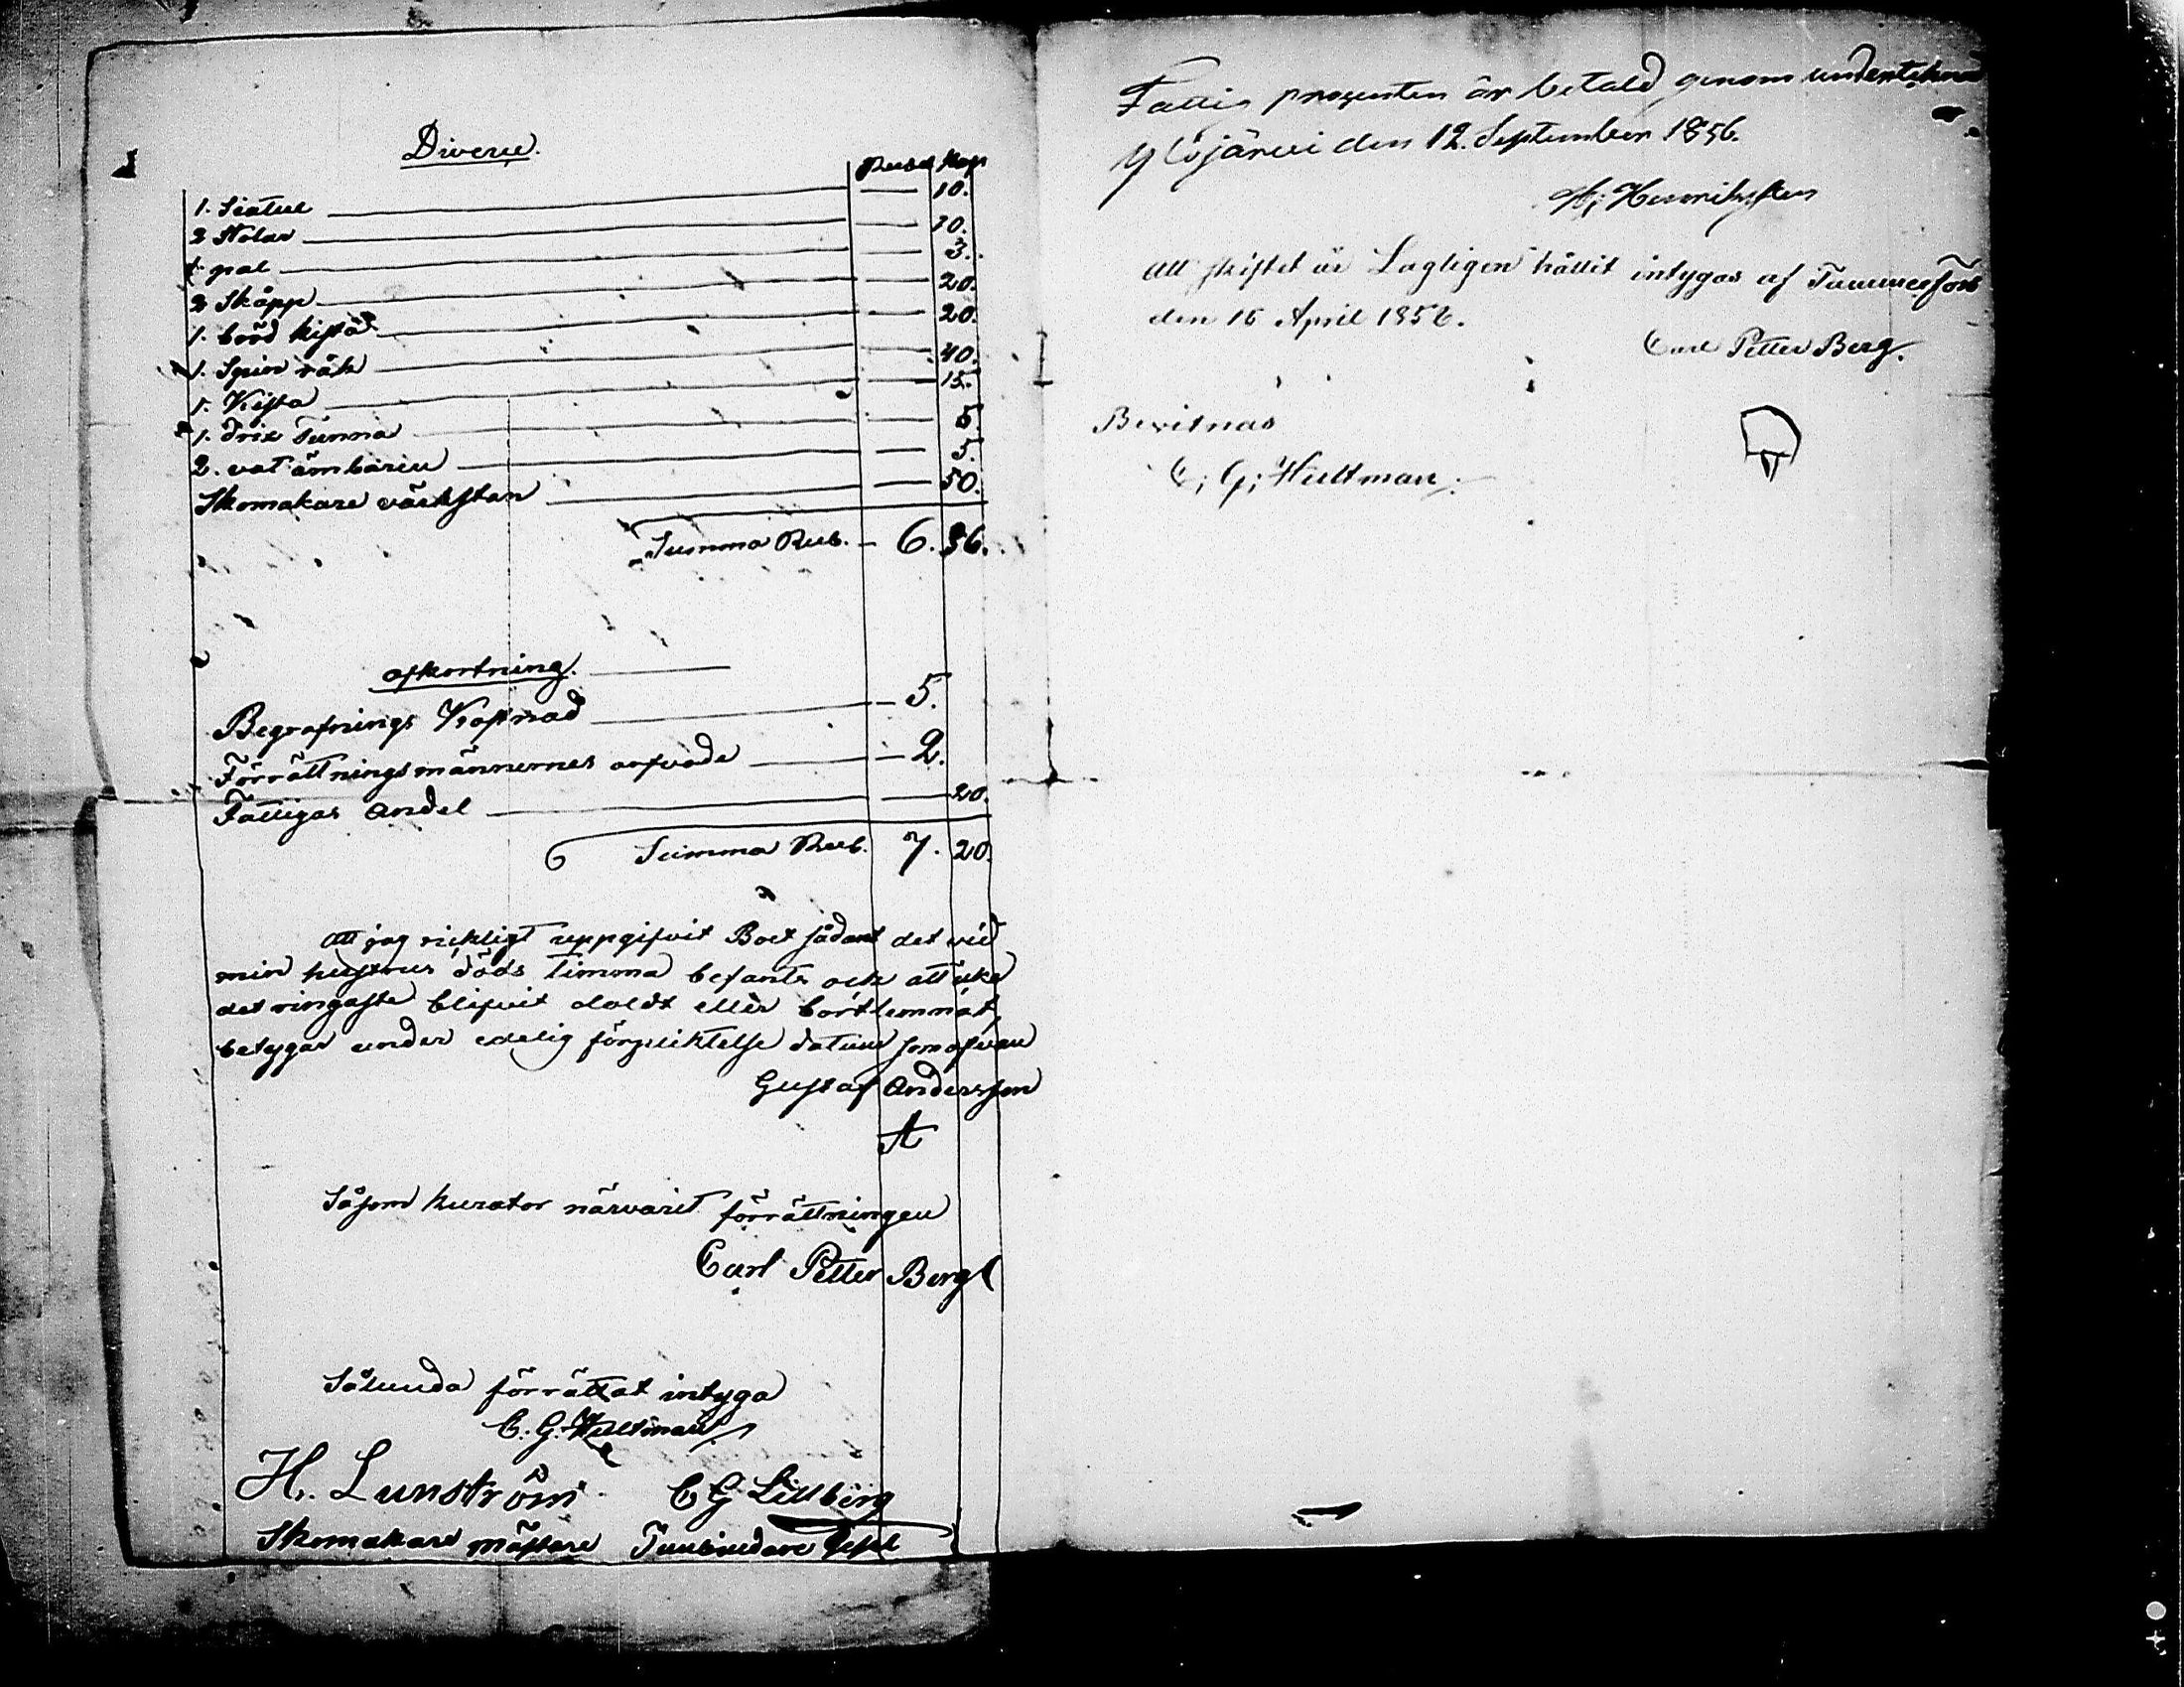 Diverse.
Rubel Kop
1. Siatul 10.
2 Stolar 10.
1 pal 3.
2 Skåpp 20.
1. bröd kista 20.
1. Spin råk 40.
1. Kista 15.
1. drix Tunna 5
2. vat ämbaren 5.
Skomakare värkstan 50.
Summa Rub. 6. 36.
afkortning.
Begrafnings Kostnad 5.
Förrättningsmännernes arfvode 2.
Fattigas Andel 20.
Summa Rub. 7. 20.
Att jag ricktigt uppgifvit Boet sådant det vid
min hustrus döds timma befants ock att icke
det ringaste blifvit doldt eller bortlemnat,
betygar under edelig förpliktelse datum som ofvan
Gustaf Andersson
A
Såsom kurator närvarit förrättningen
Carl Petter Berg
Sålunda förrättat intyga
C. G. Hultman
H. Lunström C G Lillberg
Skomakare mästare Tunbindare
Fattig prosenten är betald genom underteknad
Ylöjärvi den 12. September 1856.
Att skiftet är Lagligen hållit intygas af Tammerfors
den 16 April 1856.
Carl Petter Berg.
Bevitnas
C; G; Hultman.